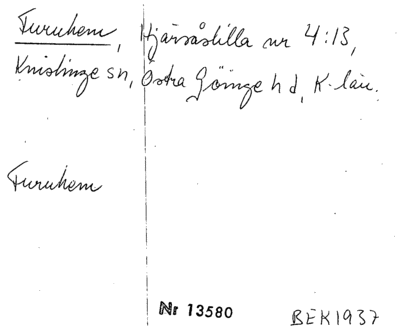 Furuhem, Hjärsåslilla nr 4:13,
Knislinge sn, Östra Göinge hd, K-län.
Furuhem
Nr 13580
BEK1937